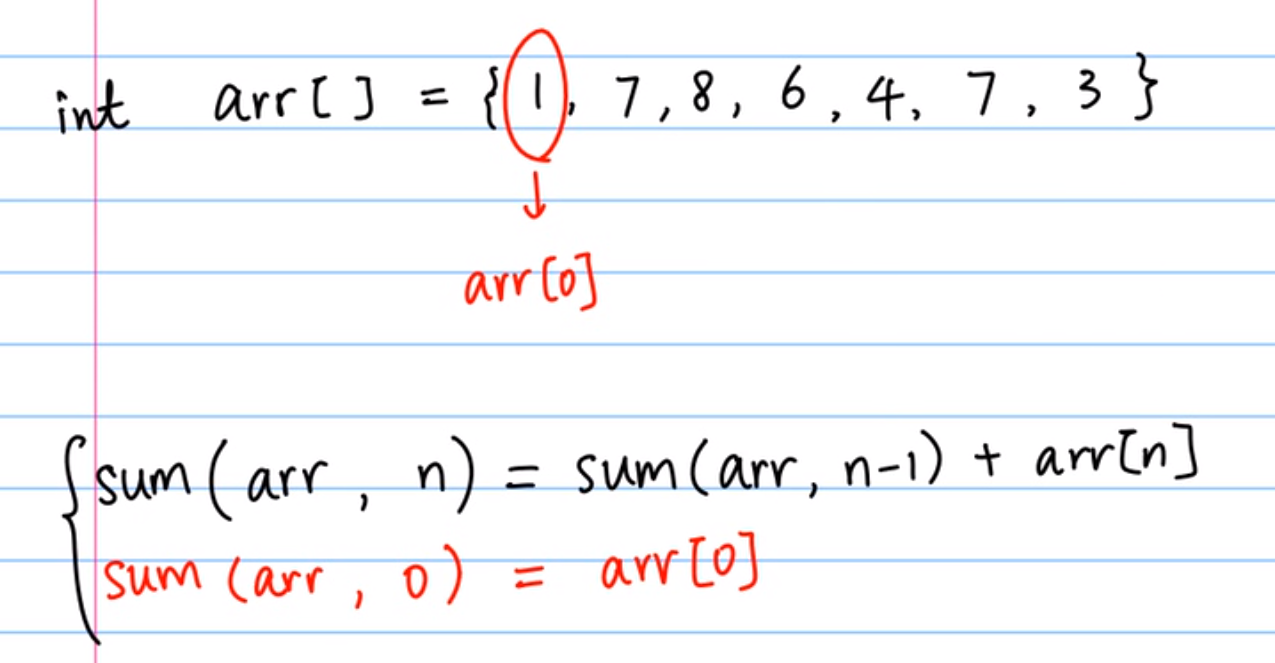 int arr[] = {1, 7, 8, 6, 4, 7, 3}
arr[0]
sum(arr, n) = sum(arr, n-1) + arr[n]
sum(arr, 0) = arr[0]